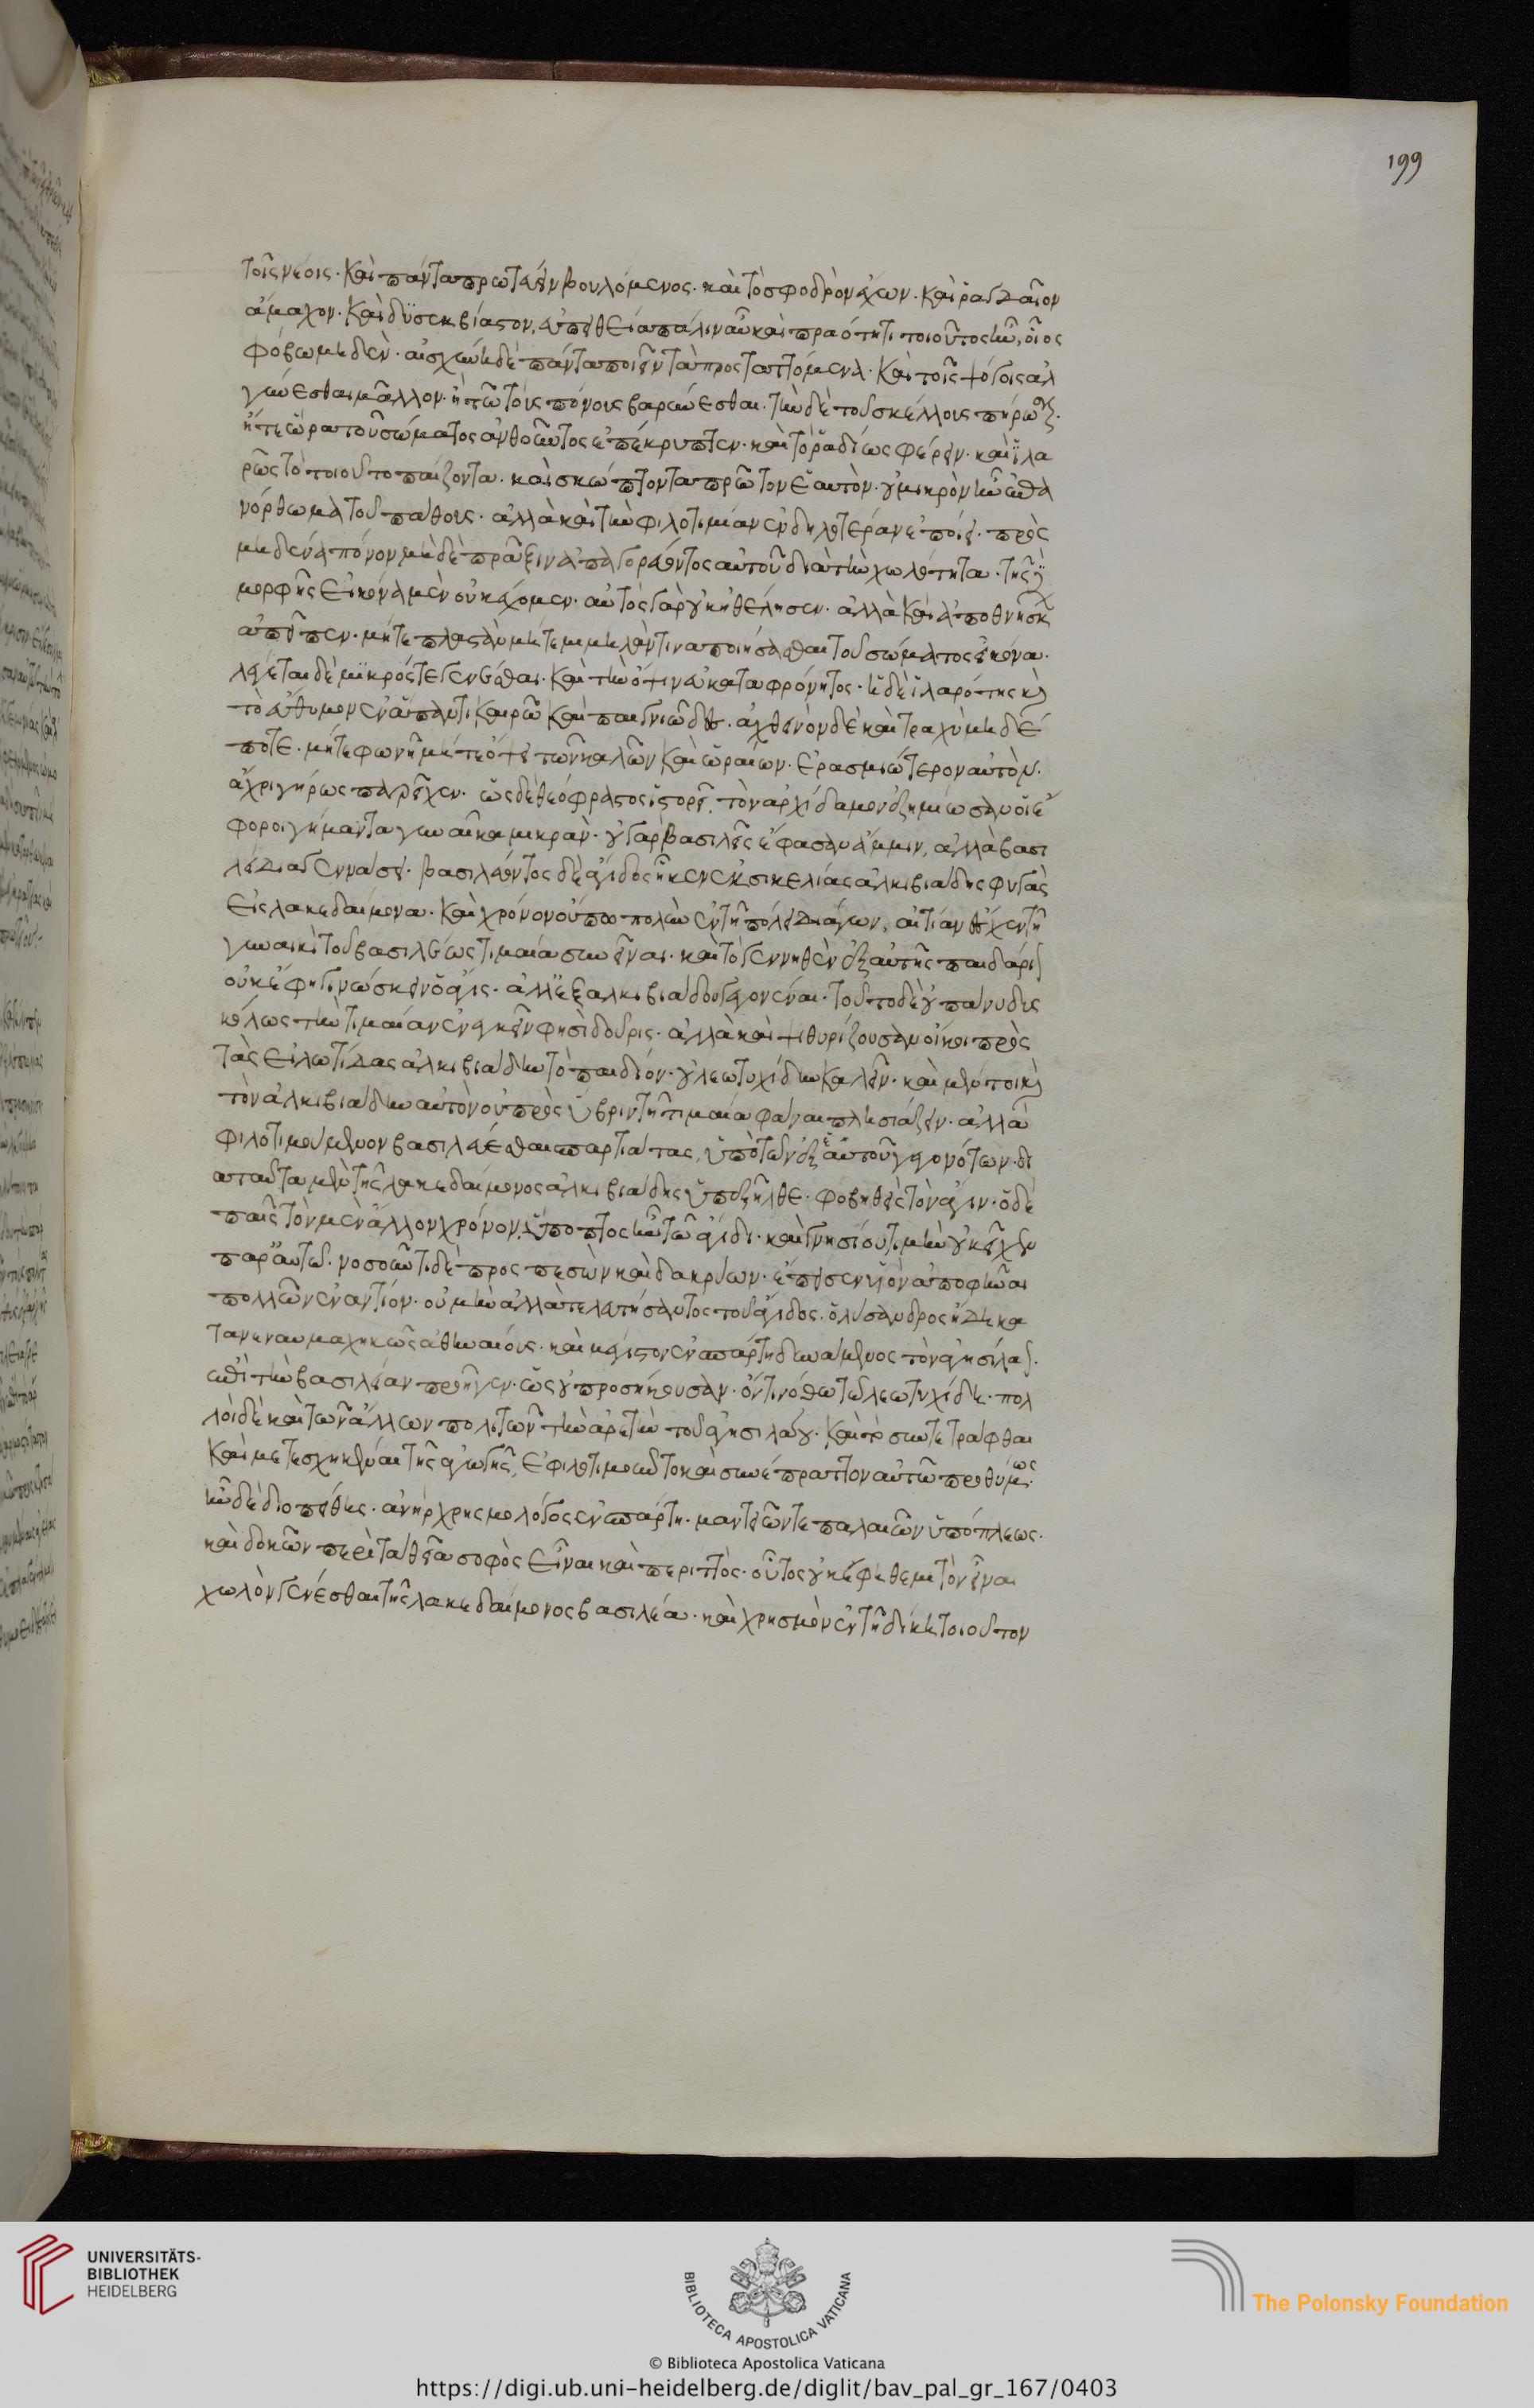 τοῖς νέοις· καὶ πάντα πρωτεύειν βουλόμενος· καὶ τὸ σφοδρὸν ἔχων· καὶ ῥαγδαῖον
ἄμαχον· καὶ δυσεκβίαστον, εὐπειθεία πάλιν αὖ καὶ πραότητι τοιοῦτος ἦν, οἷος
φόβω μηδὲν· αἰσχύνη δὲ πάντα ποιεῖν τὰ προσταττόμενα· καὶ τοῖς ψόγοις ἀλ
γύνεσθαι μᾶλλον· ἢ τῶ τοῖς πόνοις βαρύνεσθαι. τὴν δὲ τοῦ σκέλλους πήρωσιν·
ἥτε ὥρα τοῦ σώματος ἀνθοῦντος ἐπέκρυπτεν· καὶ τὸ ῥαδίως φέρειν· καὶ ἱλα
ρῶς τὸ τοιοῦτο παίζοντα· καὶ σκώπτοντα πρῶτον ἑαυτὸν· οὐ μικρὸν ἦν ἐπα
νόρθωμα τοῦ πάθους· ἀλλὰ καὶ τὴν φιλοτιμίαν ἐνδηλοτέραν ἐποίει· πρὸς
μηδένα πόνον μὴδὲ πρᾶξιν ἀπαγορεύοντος αὐτοῦ διὰ τὴν χωλότητα· τῆς
μορφῆς εἰκόνα μὲν οὐκ ἔχομεν· αὐτὸς γὰρ οὐκ ἠθέλησεν· ἀλλὰ καὶ ἀποθνήσκων
ἀπεῖπεν· μήτε πλαστὰν μήτε μιμηλάν τινα ποιήσασθαι τοῦ σώματος εἰκόνα·
λέγεται δὲ μικρός τε γενέσθαι· καὶ τὴν ὄψιν εὐκαταφρόνητος· ἡ δὲ ἱλαρότης καὶ
τὸ εὔθυμον ἐν ἅπαντι καιρῶ καὶ παιγνιῶδες· ἀχθεινὸν δὲ καὶ τραχὺ μηδέ
ποτε· μήτε φωνῆ μήτε ὄψει τῶν καλῶν καὶ ὡραίων· ἐρασμιώτερον αὐτὸν·
ἄχρι γήρως παρεῖχεν· ὡς δὲ θεόφραστος ἱστορεῖ· τὸν ἀρχίδαμον ἐζημίωσαν οἱ ἔ
φοροι γήμαντα γυναῖκα μικρὰν· οὐ γὰρ βασιλεῖς ἔφασαν ἄμμιν, ἀλλὰ βασι
λείδια γεννάσει· βασιλεύοντος δὲ ἄγιδος ἧκεν ἐκ σικελίας ἀλκιβιάδης φυγὰς
εἰς λακεδαίμονα· καὶ χρόνον οὔπω πολὺν ἐν τῆ πόλει διάγων, αἰτίαν ἔσχεν τῆ
γυναικὶ τοῦ βασιλέως τιμαία συνεῖναι· καὶ τὸ γεννηθὲν ἐξ αὐτῆς παιδάριον
οὐκ ἔφη γινώσκειν ὁ ἆγις· ἀλλ' ἐξ ἀλκιβιάδου γεγονέναι· τοῦτο δὲ οὐ πάνυ δυς
κόλως τὴν τιμαίαν ἐνεγκεῖν φησὶ δοῦρις· ἀλλὰ καὶ ψιθυρίζουσαν οἴκοι πρὸς
τὰς εἱλωτίδας ἀλκιβιάδην τὸ παιδίον· οὐ λεωτυχίδην καλεῖν· καὶ μέντοι καὶ
τὸν ἀλκιβιάδην αὐτὸν οὐ πρὸς ὕβριν τῆ τιμαία φάναι πλησιάζειν· ἀλλὰ
φιλοτιμούμενον βασιλεύεσθαι σπαρτιάτας, ὑπὸ τῶν ἐξ ἑαυτοῦ γεγονότων· δι
αταῦτα μὲν τῆς λακεδαίμονος ἀλκιβιάδης ὑπεξῆλθε· φοβηθεὶς τὸν ἆγιν· ὁ δὲ
παῖς τὸν μὲν ἄλλον χρόνον, ὕποπτος ἦν τῶ ἄγιδι· καὶ γνησίου τιμὴν οὐκ εἶχεν
παρ' αὐτῶ· νοσοῦντι δὲ προσπεσὼν καὶ δακρύων· ἔπεισεν υἱὸν ἀποφῆναι
πολλῶν ἐναντίον· οὐ μὴν ἀλλὰ τελευτήσαντος τοῦ ἄγιδος· ὁ λύσανδρος ἤδη κα
τανεναυμαχηκὼς ἀθηναίους· καὶ μέγιστον ἐν σπάρτη δυνάμενος τὸν ἀγησίλαον
ἐπὶ τὴν βασιλείαν προῆγεν· ὡς οὐ προσήκουσαν· ὄντι νόθω τῶ λεωτυχίδη· πολ
λοὶ δὲ καὶ τῶν ἄλλων πολιτῶν τὴν ἀρετὴν τοῦ ἀγησιλάου· καὶ τὸ συντετράφθαι
καὶ μετεσχηκέναι τῆς ἀγωγῆς, ἐφιλοτιμοῦντο καὶ συνέπραττον αὐτῶ προθύμως·
ἦν δὲ διοπείθης· ἀνὴρ χρησμολόγος ἐν σπάρτη· μαντειῶν τε παλαιῶν ὑπόπλεως·
καὶ δοκῶν περὶ τὰ θεῖα σοφὸς εἶναι καὶ περιττὸς· οὗτος οὐκ ἔφη θεμιτὸν εἶναι
χωλὸν γενέσθαι τῆς λακεδαίμονος βασιλέα· καὶ χρησμὸν ἐν τῆ δίκη τοιοῦτον
199
UNIVERSITÄTS-
BIBLIOTHEK
HEIDELBERG
BIBLIOTECA APOSTOLICA VATICANA
The Polonsky Foundation
© Biblioteca Apostolica Vaticana
https://digi.ub.uni-heidelberg.de/diglit/bav_pal_gr_167/0403